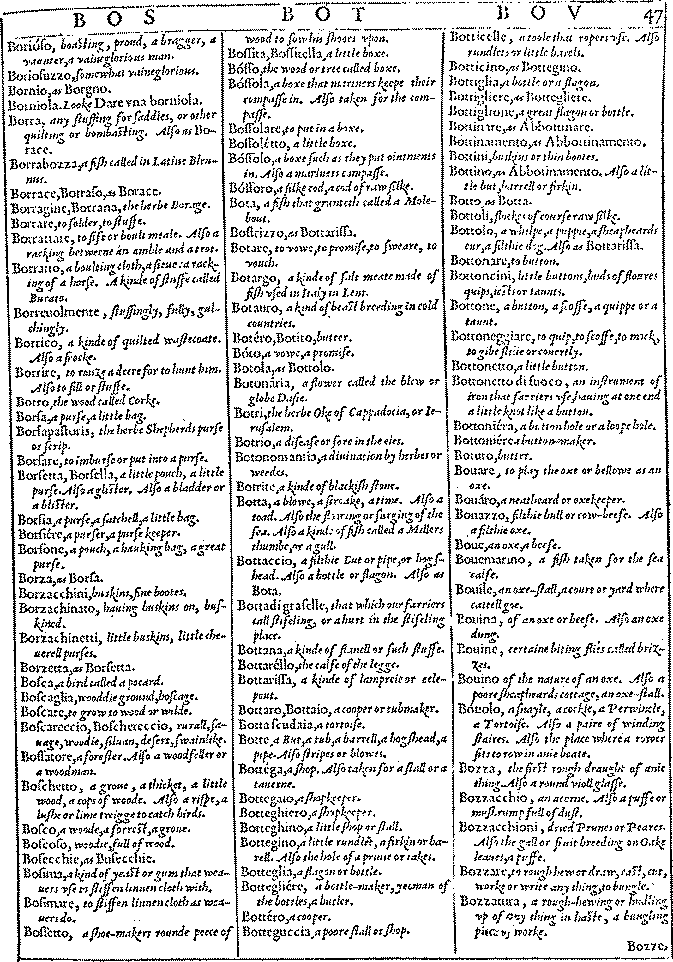 B O S
B O T
B O V
47
Borióso, boasting, proud, a bragger, a
vaunter, a vaineglorious man.
Boriosuzzo, somwhat vaineglorious.
Bornio, as Borgno.
Borniola. Looke Dare vna borniola.
Borra, any stuffing for saddles, or other
quilting or bombasting. Also as Bo-
race.
Borrabozza, a fish called in Latine
Borrace, Borraso, as Borace.
Borragine, Borrana, the herbe Borage.
Borrare, to solder, to stuffe.
Borrattare, to sift or boult meale. Also a
racking betweene an amble and a trot.
Borratto, a boulting cloth, a sieue: a rack-
ing of a horse. A kinde of stuffe called
Burato.
Borreuolmente, stuffingly, fully, gul-
chingly.
Borrico, a kinde of quilted wastecoate.
Also a frocke.
Borrire, to rouze a deere for to hunt him.
Also to fill or stuffe.
Borro, the wood called Corke.
Borsa, a purse, a little bag.
Borsapasturis, the herbe Shepherds purse
or scrip.
Borsare, to imburse or put into a purse.
Borsetta, Borsella, a little pouch, a little
purse. Also a glister. Also a bladder or
a blister.
Borsia, a purse, a satchell, a little bag.
Borsiére, a purser, a purse keeper.
Borsone, a pouch, a hauking bag, a great
purse.
Borza, as Borsa.
Borzacchini, buskins, fine bootes.
Borzachinato, hauing buskins on, bus-
kined.
Borzachinetti, little buskins, little che-
uerell purses.
Borzetta, as Borsetta.
Bosca, a bird called a pocard.
Boscaglia, wooddie ground, boscage.
Boscare, to grow to wood or wilde.
Boscareccio, Boschereccio, rurall, sa-
uage, woodie, siluan, desert, swainlike.
Boscatore, a forester. Also a woodfeller or
a woodman.
Boschetto, a groue, a thicket, a little
wood, a cops of woode. Also a rispe, a
bushe or lime twigge to catch birds.
Bosco, a woode, a forrest, a groue.
Boscoso, woodie, full of wood.
Bosecchie, as Busecchie.
Bosima, a kind of yeast or gum that wea-
uers vse to stiffen linnen cloth with.
Bosimare, to stiffen linnen cloth as wea-
uers do.
Bossetto, a shoe-makers rounde peece of
wood to sow his shooes vpon.
Bossita, Bossitella, a little boxe.
Bósso, the wood or tree called boxe.
Bóssola, a boxe that mariners keepe their
compasse in. Also taken for the com-
passe.
Bossolare, to put in a boxe.
Bossolétto, a little boxe.
Bóssolo, a boxe such as they put ointments
in. Also a mariners compasse.
Bósforo, a silke cod, a cod of raw silke.
Bota, a fish that grunteth called a Mole-
bout.
Bostrizzo, as Bottarissa.
Botare, to vowe, to promise, to sweare, to
vouch.
Botargo, a kinde of salt meate made of
fish vsed in Italy in Lent.
Botauro, a kind of beast breeding in cold
countries.
Botéro, Botiro, butter.
Bóto, a vowe, a promise.
Botola, as Bottolo.
Botonária, a flower called the blew or
globe Dasie.
Botri, the herbe Oke of Cappadocia, or Ie-
rusalem.
Botrio, a disease or sore in the eies.
Botonomantia, a diuination by herbes or
weedes.
Botrite, a kinde of blackish stone.
Botta, a blowe, a stroake, a time. Also a
toad. Also the stirring or surging of the
sea. Also a kinde of fish called a Millers
thumbe, or a gull.
Bottaccio, a filthie But or pipe, or hogs-
head. Also a bottle or flagon. Also as
Bota.
Bottadi graselle, that which our farriers
call stifeling, or a hurt in the stifeling
place.
Bottana, a kinde of flanell or such stuffe.
Bottaréllo, the calfe of the legge.
Bottarissa, a kinde of lampreie or eele-
pout.
Bottaro, Bottaio, a cooper or tubmaker.
Botta scudaia, a tortoise.
Botte, a But, a tub, a barrell, a hogshead, a
pipe. Also stripes or blowes.
Bottéga, a shop. Also taken for a stall or a
tauerne.
Bottegaio, a shopkeeper.
Botteghiero, a shopkeeper.
Botteghino, a little shop or stall.
Bottegino, a little rundlet, a firkin or ba-
rell. Also the hole of a prune or rakes.
Botteglia, a flagon or bottle.
Bottegliére, a bottle-maker, yeoman of
the bottles, a butler.
Bottéro, a cooper.
Botteguccia, a poore stall or shop.
Botticelle, a toole that ropers vse. Also
rundlets or little barels.
Botticino, as Bottegino.
Bottiglia, a bottle or a flagon.
Bottigliere, as Bottegliere.
Bottiglione, a great flagon or bottle.
Bottinare, as Abbottinare.
Bottinamento, as Abbottinamento.
Bottini, buskins or thin bootes.
Bottino, as Abbottinamento. Also a lit-
tle but, barrell or firkin.
Botto, as Botta.
Bottoli, flockes of course raw silke.
Bottolo, a whelpe, a puppie, a sheapheards
cur, a filthie dog. Also as Bottarissa.
Bottonare, to button.
Bottoncini, little buttons, buds of floures
quips, iests or taunts.
Bottone, a button, a scoffe, a quippe or a
taunt.
Bottoneggiare, to quip, to scoffe, to mock,
to gibe slilie or couertly.
Bottonetto, a little button.
Bottonetto di fuoco, an instrument of
iron that farriers vse, hauing at one end
a little knot like a button.
Bottoniéra, a button hole or a loope hole.
Bottoniére a button-maker.
Boturo, butter.
Bouare, to play the oxe or bellowe as an
oxe.
Bouáro, a neatheard or oxekeeper.
Bouazzo, filthie bull or cow-beefe. Also
a filthie oxe.
Boue, an oxe, a beefe.
Bouemarino, a fish taken for the sea
calfe.
Bouile, an oxe-stall, a court or yard where
cattell goe.
Bouina, of an oxe or beefe. Also an oxe
dung.
Bouine, certaine biting flies called briz-
zes.
Bouino of the nature of an oxe. Also a
poore sheapheards cottage, an oxe-stall.
Bóuolo, a snayle, a cockle, a Perwinkle,
a Tortoise. Also a paire of winding
staires. Also the place where a rower
sits to row in anie boate.
Bozza, the first rough draught of anie
thing. Also a round violl glasse.
Bozzacchio, an acorne. Also a puffe or
mushrump full of dust.
Bozzacchioni, dried Prunes or Peares.
Also the gall or fruit breeding on Oake
leaues, a puffe.
Bozzare, to rough hew or draw, cast, cut,
worke or write any thing, to bungle.
Bozzatura, a rough-hewing or hudling
vp of any thing in haste, a bungling
piece of worke.
Bozze,